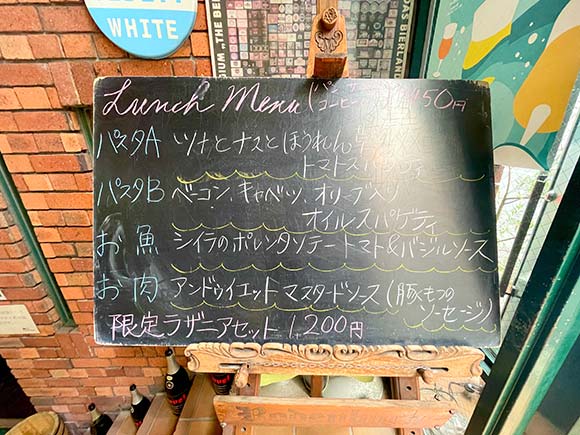 WHITE
Lunch Menu
パスタA ツナとナスとほうれん草
トマトスパゲティ
パスタB ベーコン、キャベツ、オリーブ入り
オイルスパゲティ
お魚 シイラのポレンタソテートマト&バジルソース
お肉 アンドゥイエットマスタードソース(豚もつの
ソーセージ)
限定ラザニアセット 1,200円